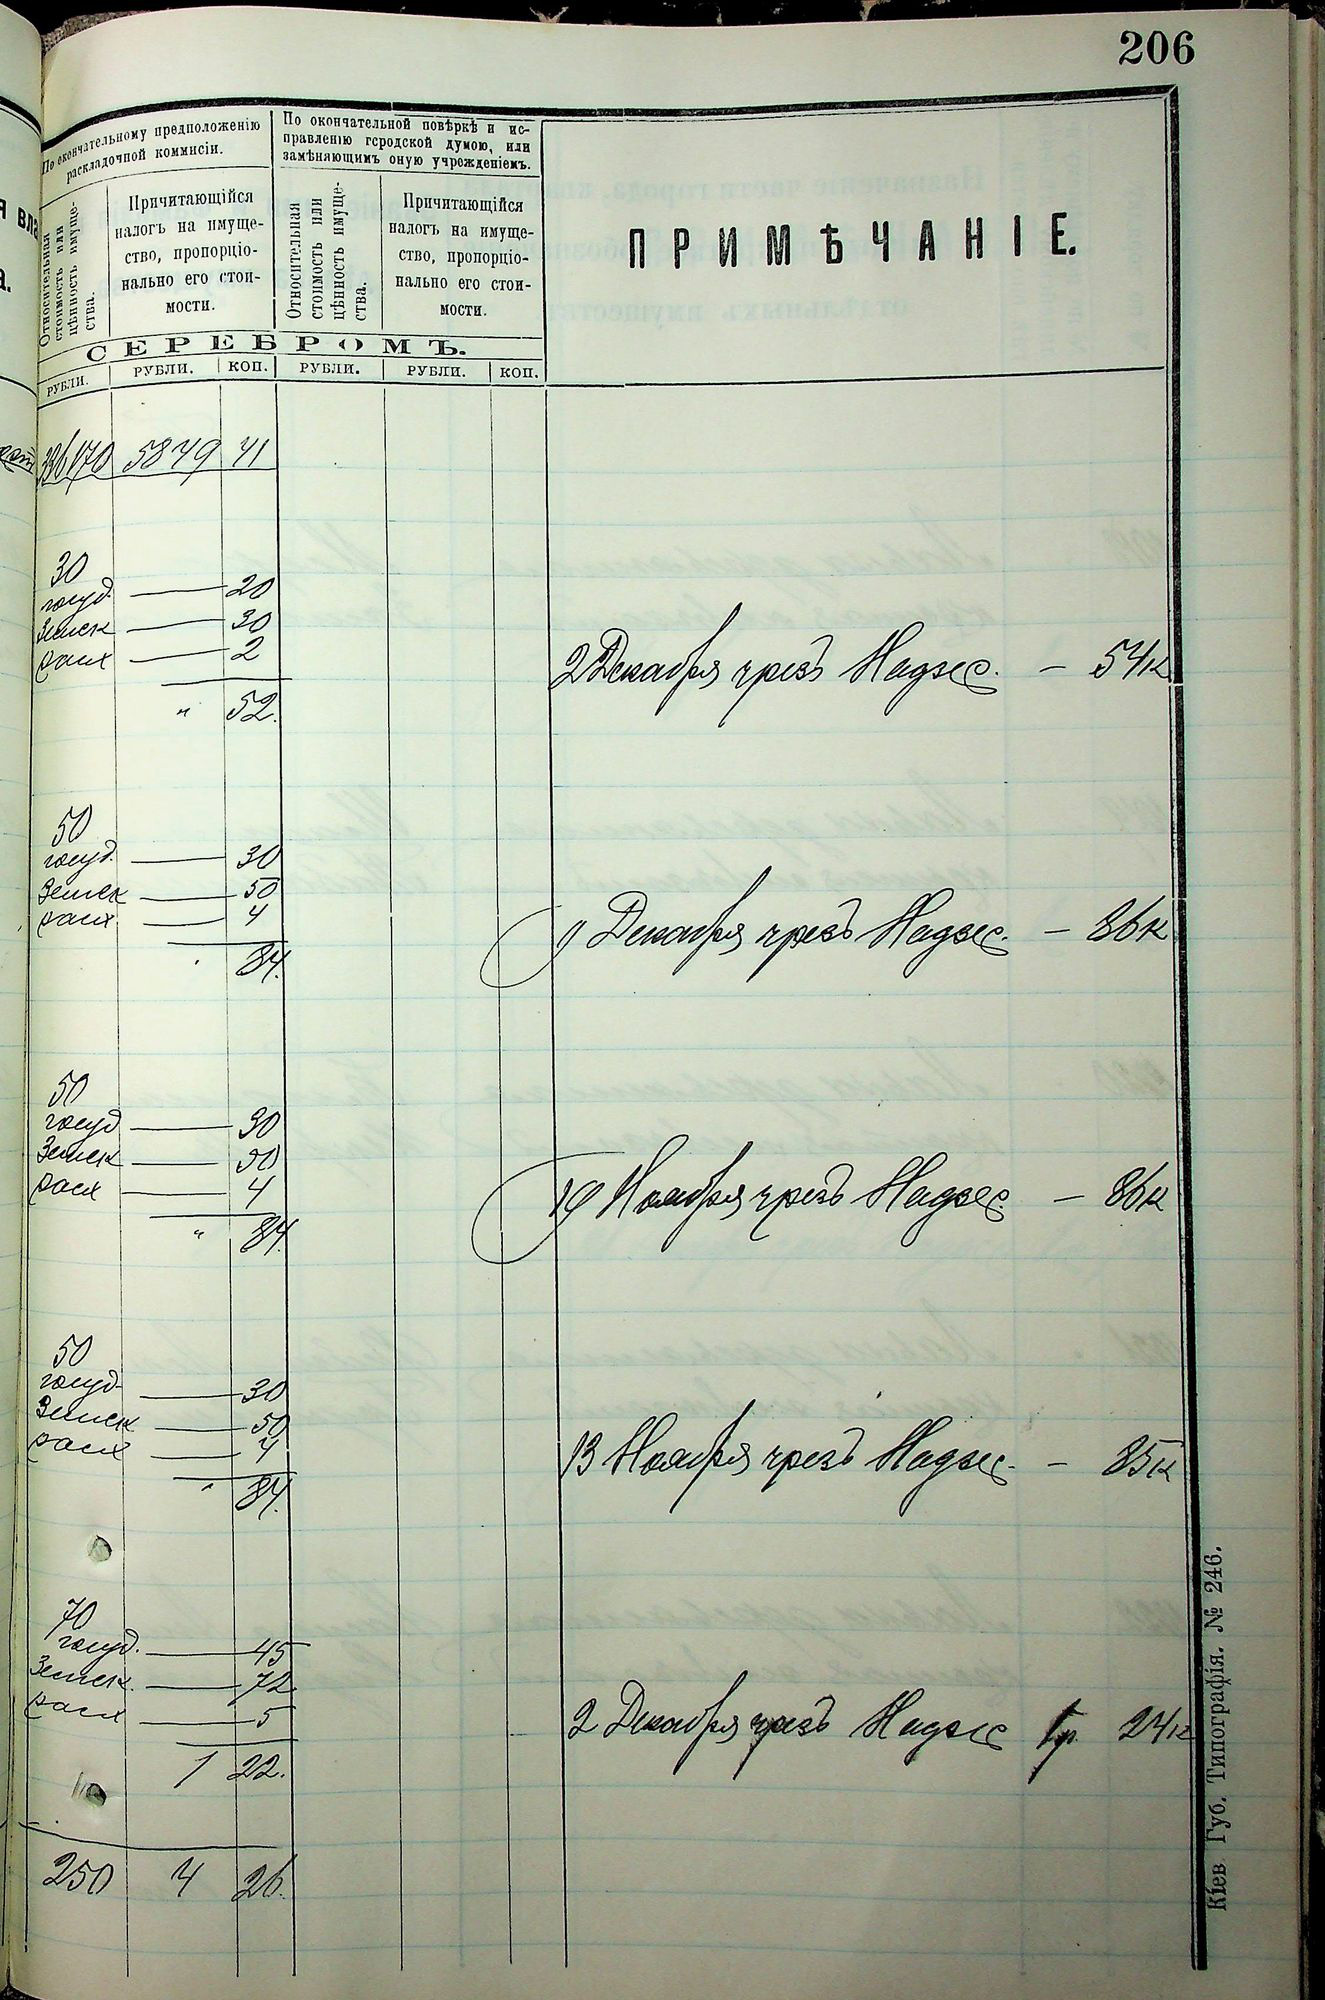 206
По окончательному предположенію
раскладочной коммисіи.
По окончательной повѣркѣ и ис-
правленію городской думою, или
замѣняющимъ оную учрежденіемъ.
Относительная
стоимость или
цѣнность имуще-
ства.
Причитающійся
налогъ на имуще-
ство, пропорціо-
нально его стои-
мости.
Относительная
стоимость или
цѣнность имуще-
ства.
Причитающійся
налогъ на имуще-
ство, пропорціо-
нально его стои-
мости.
ПРИМѢЧАНІЕ.
СЕРЕБРОМЪ.
РУБЛИ. РУБЛИ. КОП. РУБЛИ. РУБЛИ. КОП.
336170 5849 41
30
госуд. — 20
Земск — 30
расх — 2
" 52.
2 Декабря чрезъ Надзс. — 54 к
50
госуд. — 30
Земск — 50
расх. — 4
84.
9 Декабря чрезъ Надзс. — 86 к
50
госуд — 30
Земск — 50
расх — 4
" 84.
19 Ноября чрезъ Надзс. — 86 к
50
госуд. — 30
Земск — 50
расх — 4
" 84.
13 Ноября чрезъ Надзс. — 85 к
70
госуд. — 45
Земск. — 72
расх — 5
1 22.
2 Декабря чрезъ Надзс 1 р. 24 к
250 4 26.
Кіев Губ. Типографія. № 246.